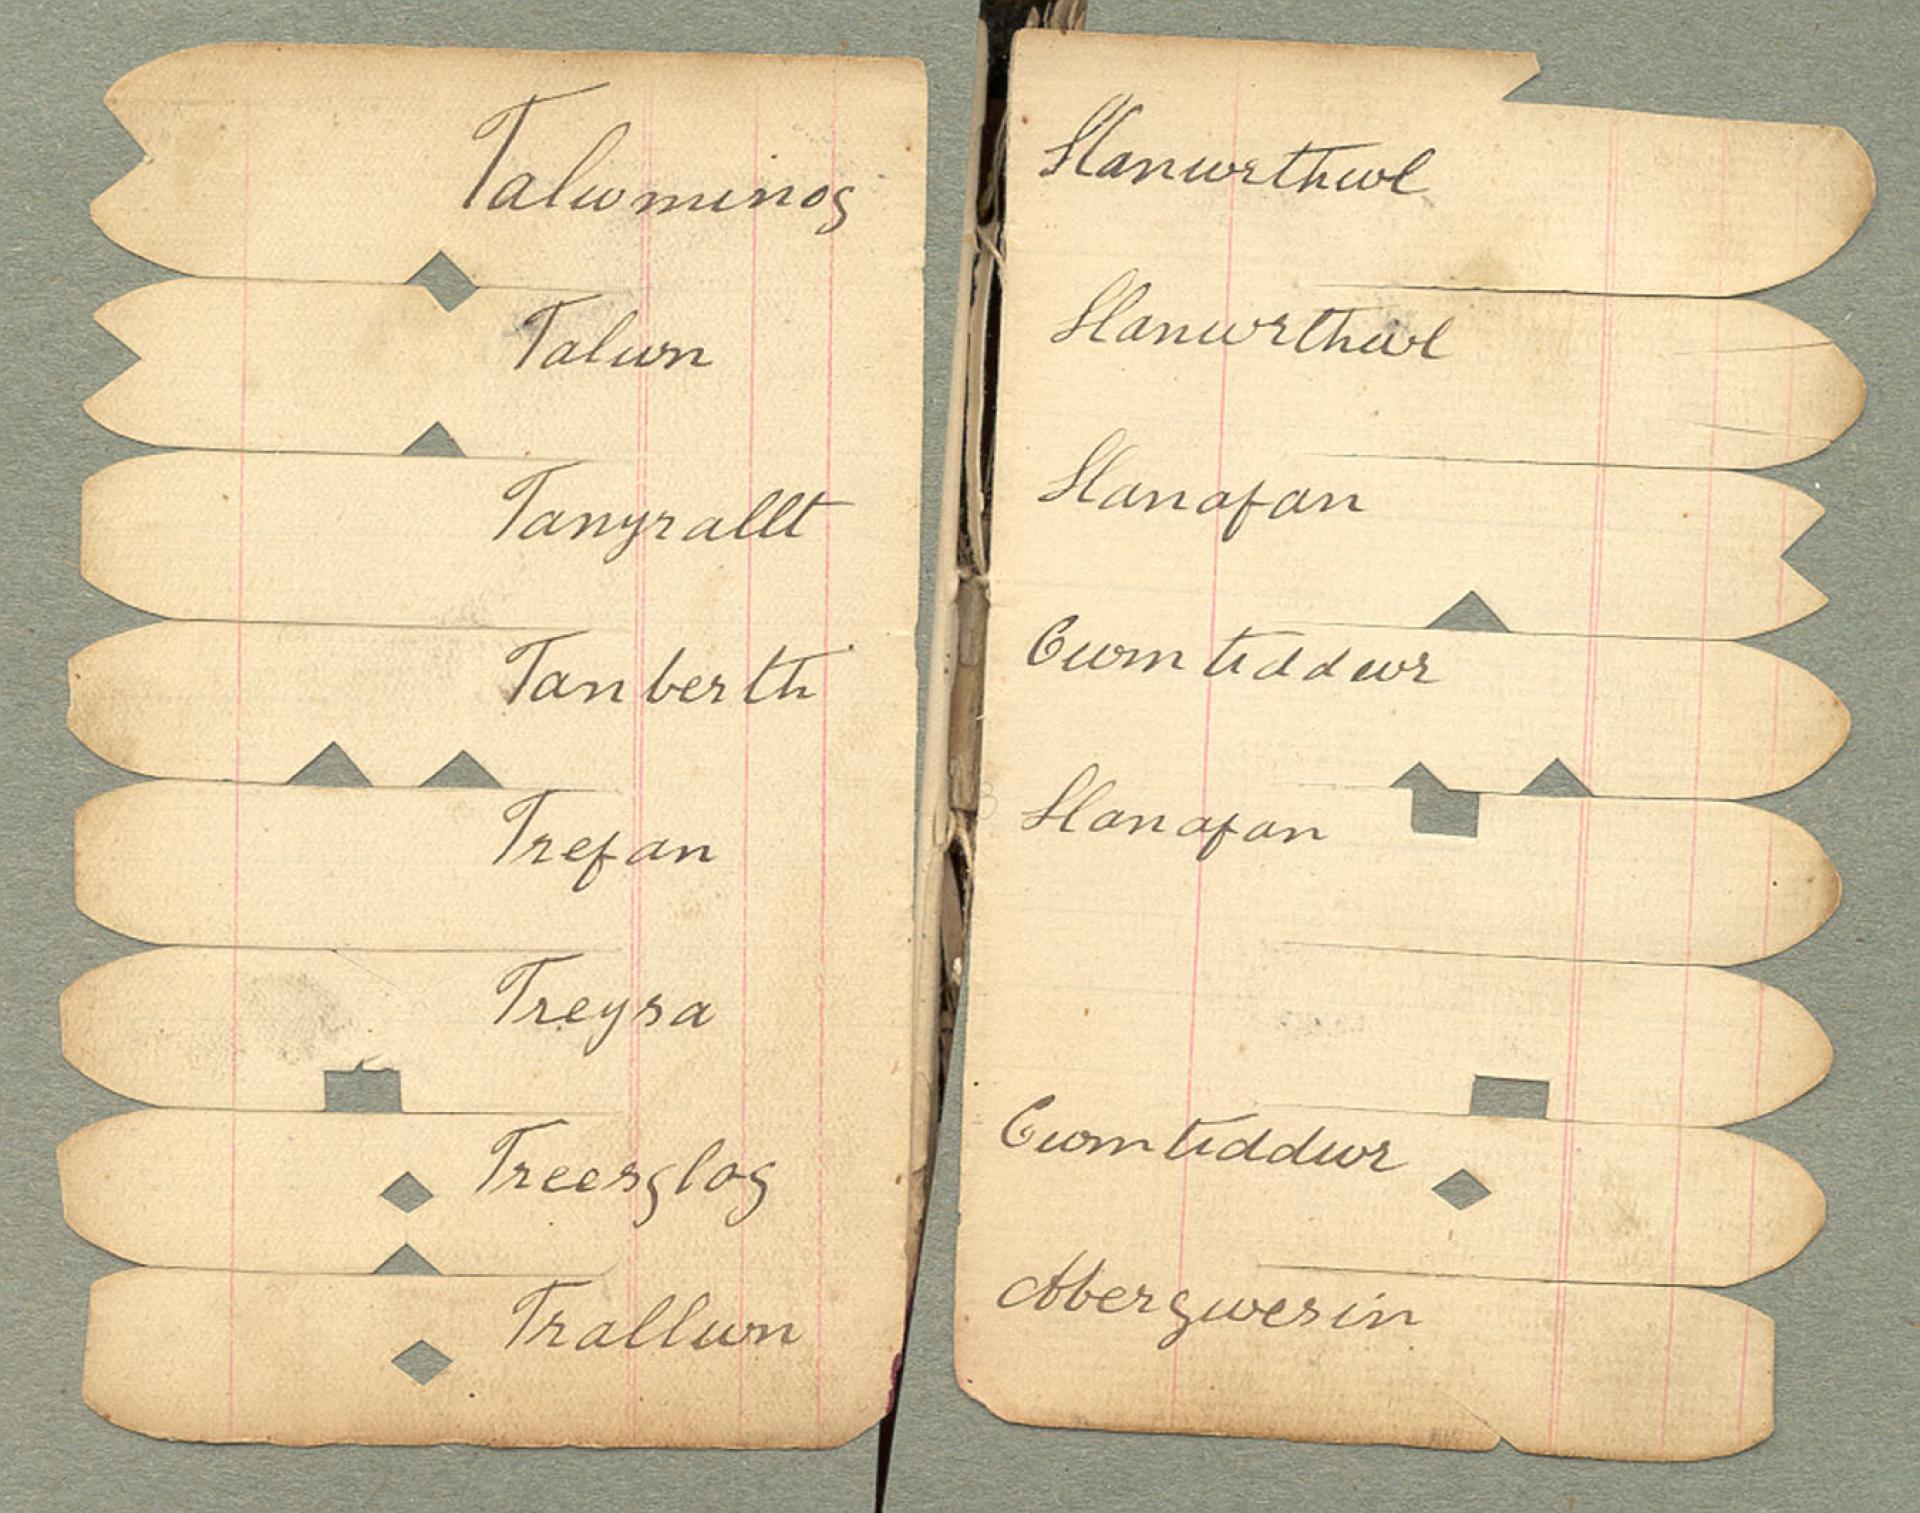 Talwminog
Talwn
Tanyrallt
Tanberth
Trefan
Treyra
Treerglog
Trallwn
Llanwrthwl
Llanwrthwl
Llanafan
Cwmtiddwr
Llanafan
Cwmtiddwr
Abergwesin